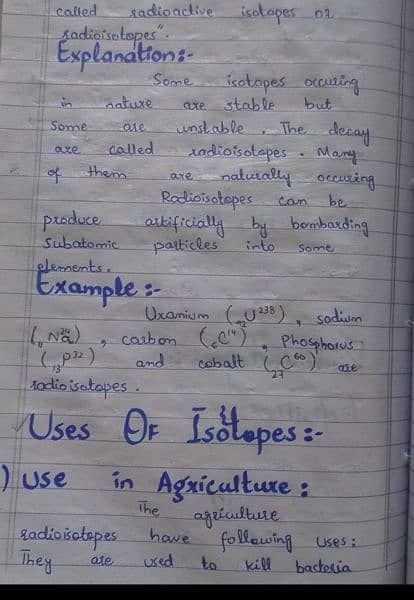 called radioactive isotopes or
radioisotopes".
Explanation:-
Some isotopes occuring
in nature are stable but
some are unstable. The decay
are called radioisotopes. Many
of them are naturally occuring
Radioisotopes can be
produce artificially by bombarding
Subatomic particles into some
elements.
Example:-
Uranium (₉₂U²³⁸), sodium
(₁₁Na²⁴), carbon (₆C¹⁴), Phosphorus
(₁₃P³²) and cobalt (₂₇C⁶⁰) are
radioisotopes.
Uses Of Isotopes:-
) Use in Agriculture:
The agriculture
radioisotopes have following uses:
They are used to kill bacteria